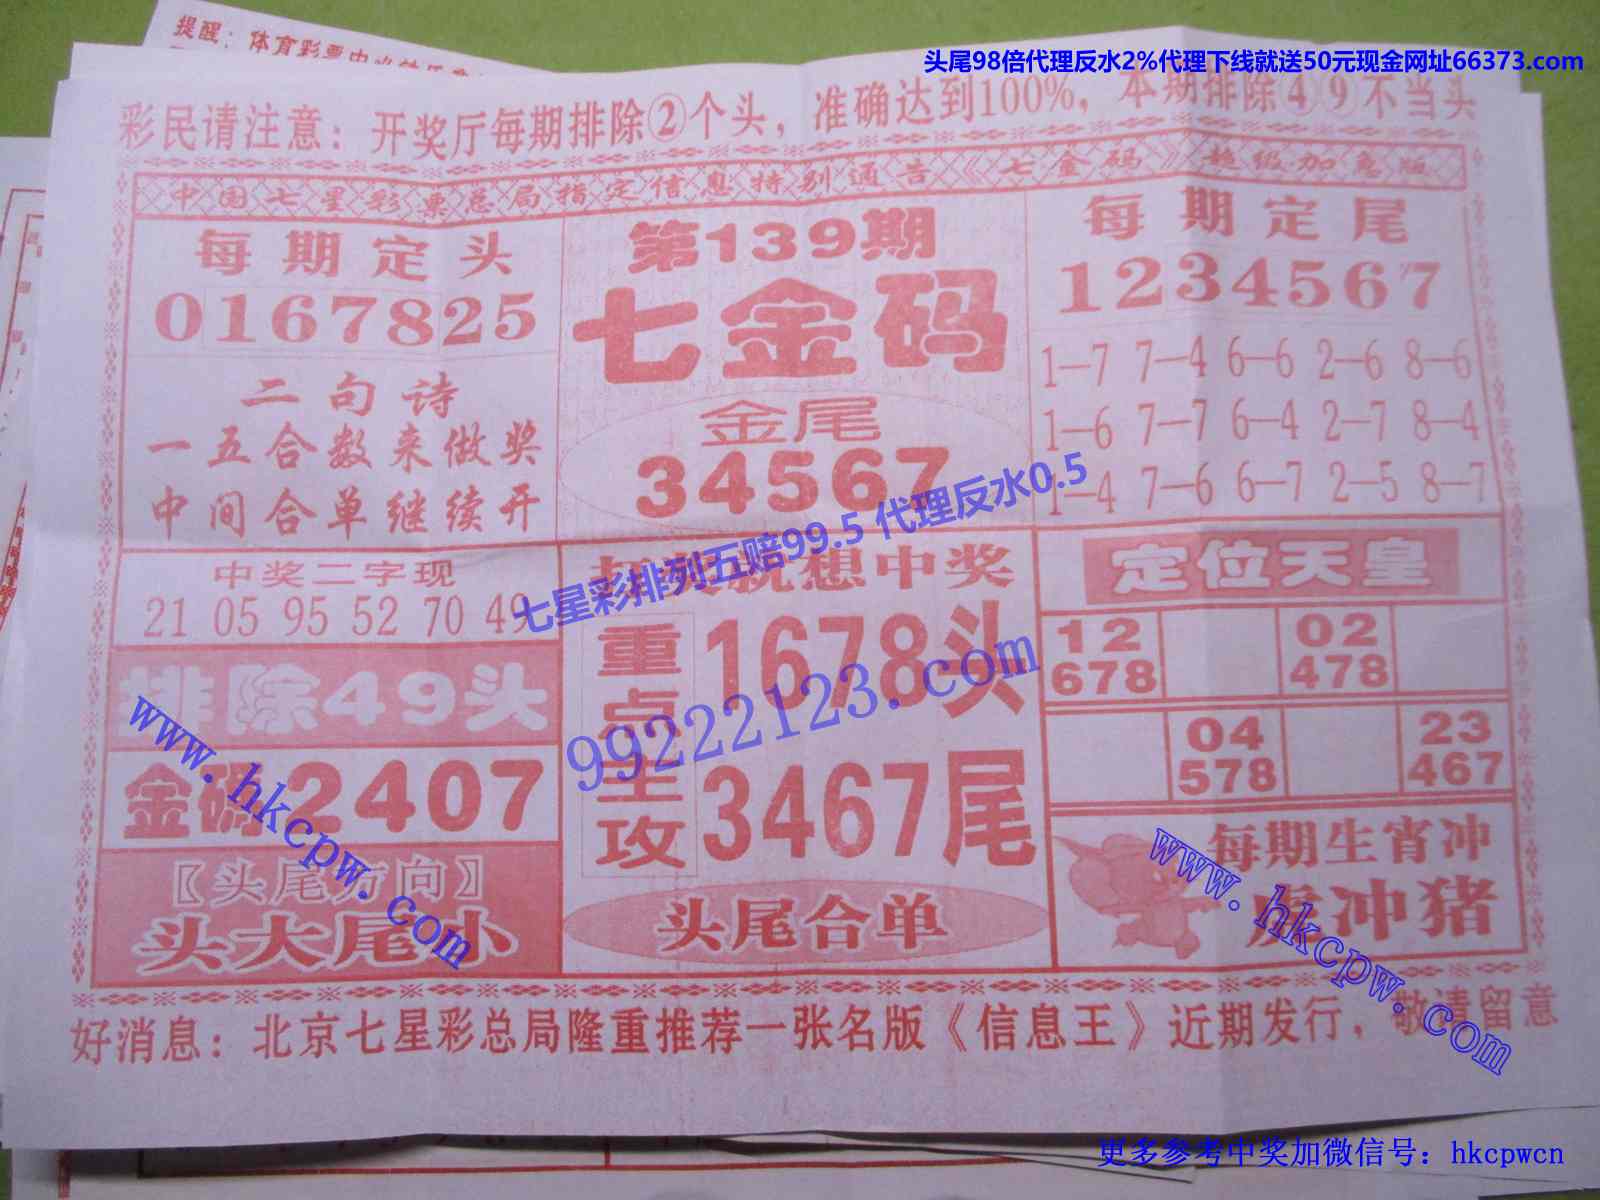 提醒：体育彩票中
头尾98倍代理反水2%代理下线就送50元现金网址66373.com
彩民请注意：开奖厅每期排除②个头，准确达到100%，本期排除④⑨不当头
中国七星彩票总局指定信息特别通告《七金码》超级加急版
每期定头
0167825
二句诗
一五合数来做奖
中间合单继续开
第139期
七金码
金尾
34567
每期定尾
1234567
1—7 7—4 6—6 2—6 8—6
1—6 7—7 6—4 2—7 8—4
1—4 7—6 6—7 2—5 8—7
七星彩排列五赔99.5 代理反水0.5
中奖二字现
21 05 95 52 70 49
排除49头
金码2407
【头尾方向】
头大尾小
就想中奖
重点主攻
1678头
3467尾
头尾合单
99222123.com
定位天皇
12 678
02 478
04 578
23 467
每期生肖冲
虎冲猪
www.hkcpw.com
www.hkcpw.com
好消息：北京七星彩总局隆重推荐一张名版《信息王》近期发行，敬请留意
更多参考中奖加微信号：hkcpwcn